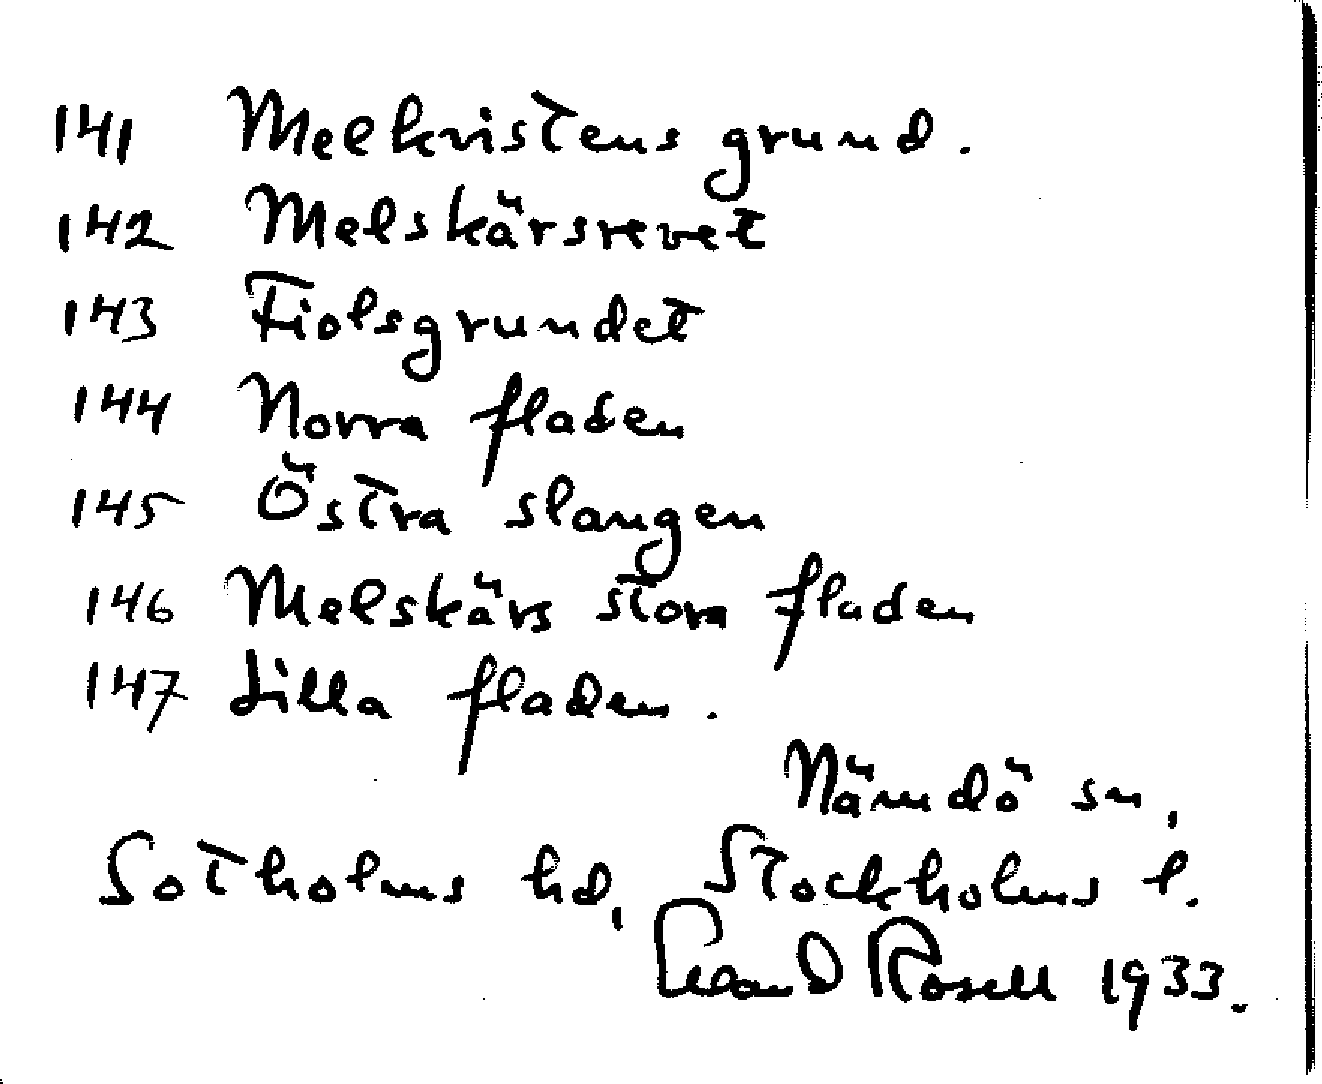 141 Melkvistens grund.
142 Melskärsrevet
143 Fiolsgrundet
144 Norra fladen
145 Östra slangen
146 Melskärs stora fladen
147 Lilla fladen.
Nämdö sn,
Sotholms hd, Stockholms l.
Rosell 1933.